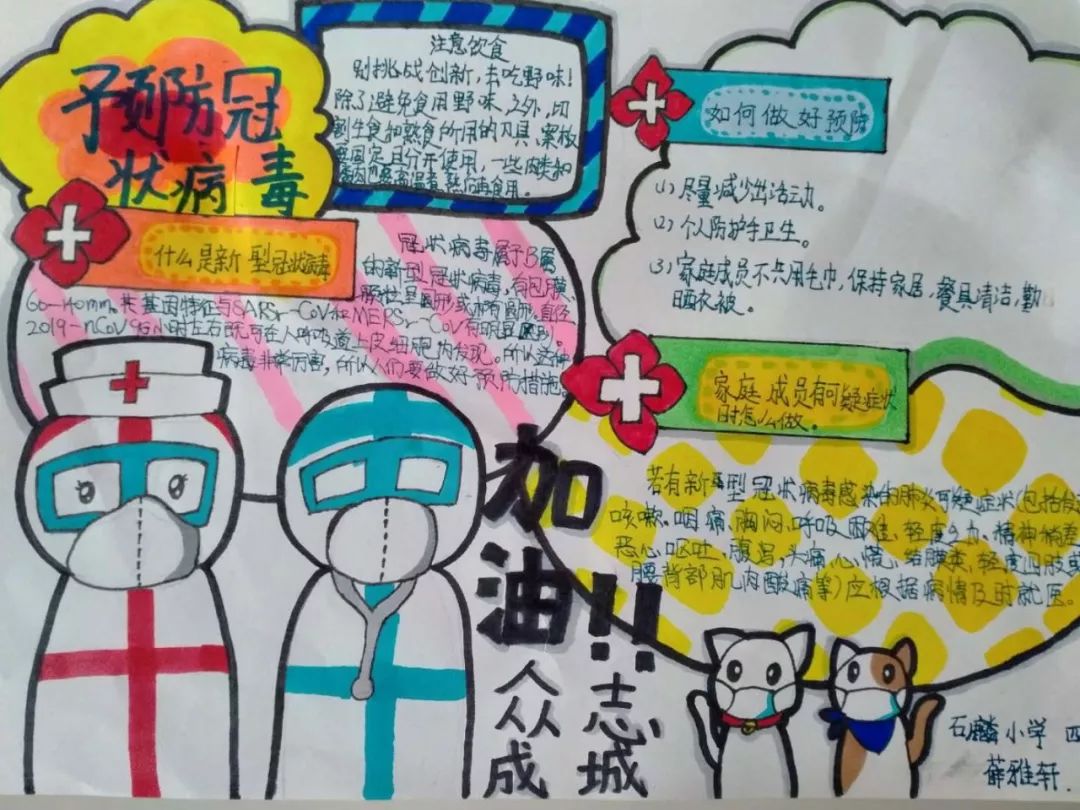 预防冠
状病毒
注意饮食
别挑战创新,去吃野味!
除了避免食用野味之外,切
割生食和熟食所用的刀具、案板
要固定且分开使用,一些肉类和
高温煮熟后再食用。
如何做好预防
(1)尽量减少出活动。
(2)个人防护手卫生。
(3)家庭成员不共用毛巾,保持家居,餐具清洁,勤
晒衣被。
什么是新型冠状病毒
冠状病毒属于B属
的新型冠状病毒,有包膜、
颗粒呈圆形或椭圆形。直径
60-140mm。其基因特征与SARSr-CoV和MERSr-CoV有明显区别。
2019-nCoV96小时左右既可在人呼吸道上皮细胞内发现。所以这种
病毒非常厉害,所以人们要做好预防措施。
家庭成员有可疑症状
时怎么做。
若有新型冠状病毒感染的肺炎可疑症状(包括发
咳嗽、咽痛、胸闷、呼吸困难、轻度乏力、精神稍差
恶心呕吐、腹泻,头痛,心慌、结膜炎、轻度四肢或
腰背部肌肉酸痛等)应根据病情及时就医。
加油!!
众志
成城
石麟小学 四
薛雅轩